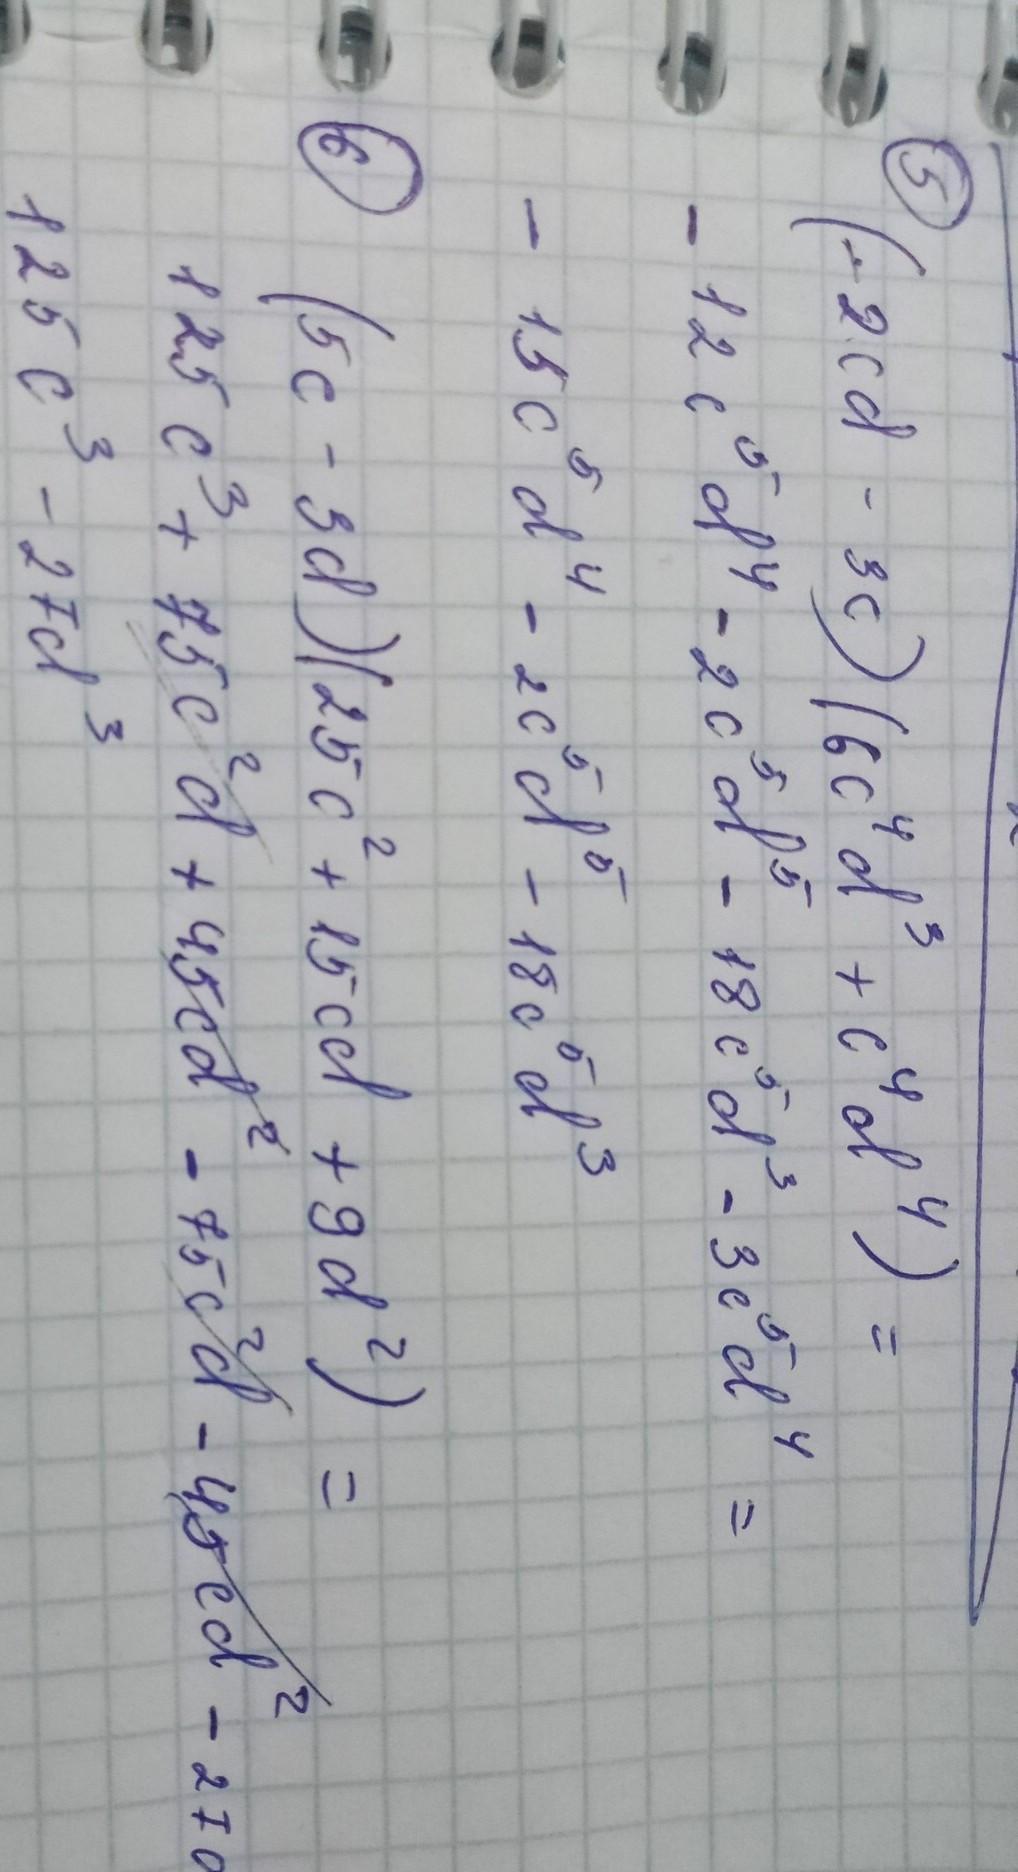 5
(-2cd - 3c)(6c⁴d³ + c⁴d⁴) =
- 12c⁵d⁴ - 2c⁵d⁵ - 18c⁵d³ - 3c⁵d⁴ =
- 15c⁵d⁴ - 2c⁵d⁵ - 18c⁵d³
6
(5c - 3d)(25c² + 15cd + 9d²) =
125c³ + 75c²d + 45cd² - 75c²d - 45cd² - 27
125c³ - 27d³